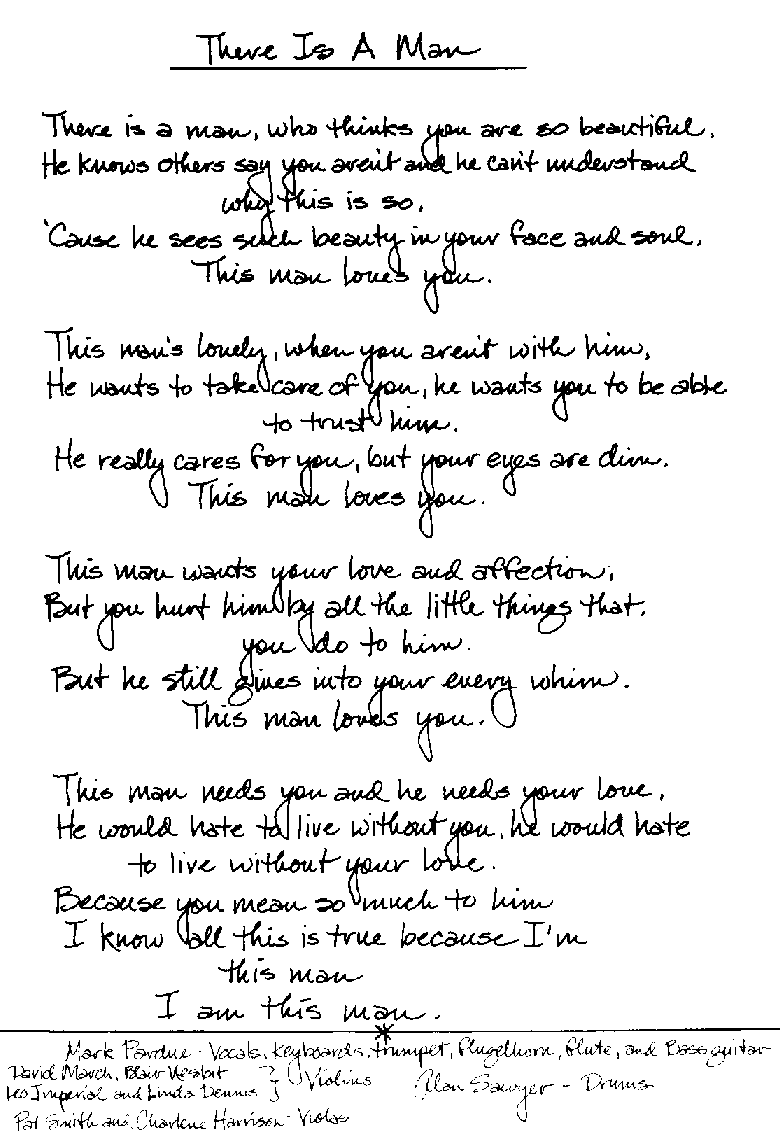 There Is A Man
There is a man, who thinks you are so beautiful.
He knows others say you aren't and he can't understand
why this is so.
'Cause he sees such beauty in your face and soul.
This man loves you.
This man's lonely, when you aren't with him,
He wants to take care of you, he wants you to be able
to trust him.
He really cares for you, but your eyes are dim.
This man loves you.
This man wants your love and affection,
But you hurt him by all the little things that
you do to him.
But he still gives into your every whim.
This man loves you.
This man needs you and he needs your love,
He would hate to live without you, he would hate
to live without your love.
Because you mean so much to him
I know all this is true because I'm
this man
I am this man.
Mark Pardue - Vocals, Keyboards, trumpet, flugelhorn, flute, and Bass guitar
David March, Blair Nesbit
Leo Imperial and Linda Dennis } Violins
Alan Sawyer - Drums
Pat Smith and Charlene Harrison - Violas